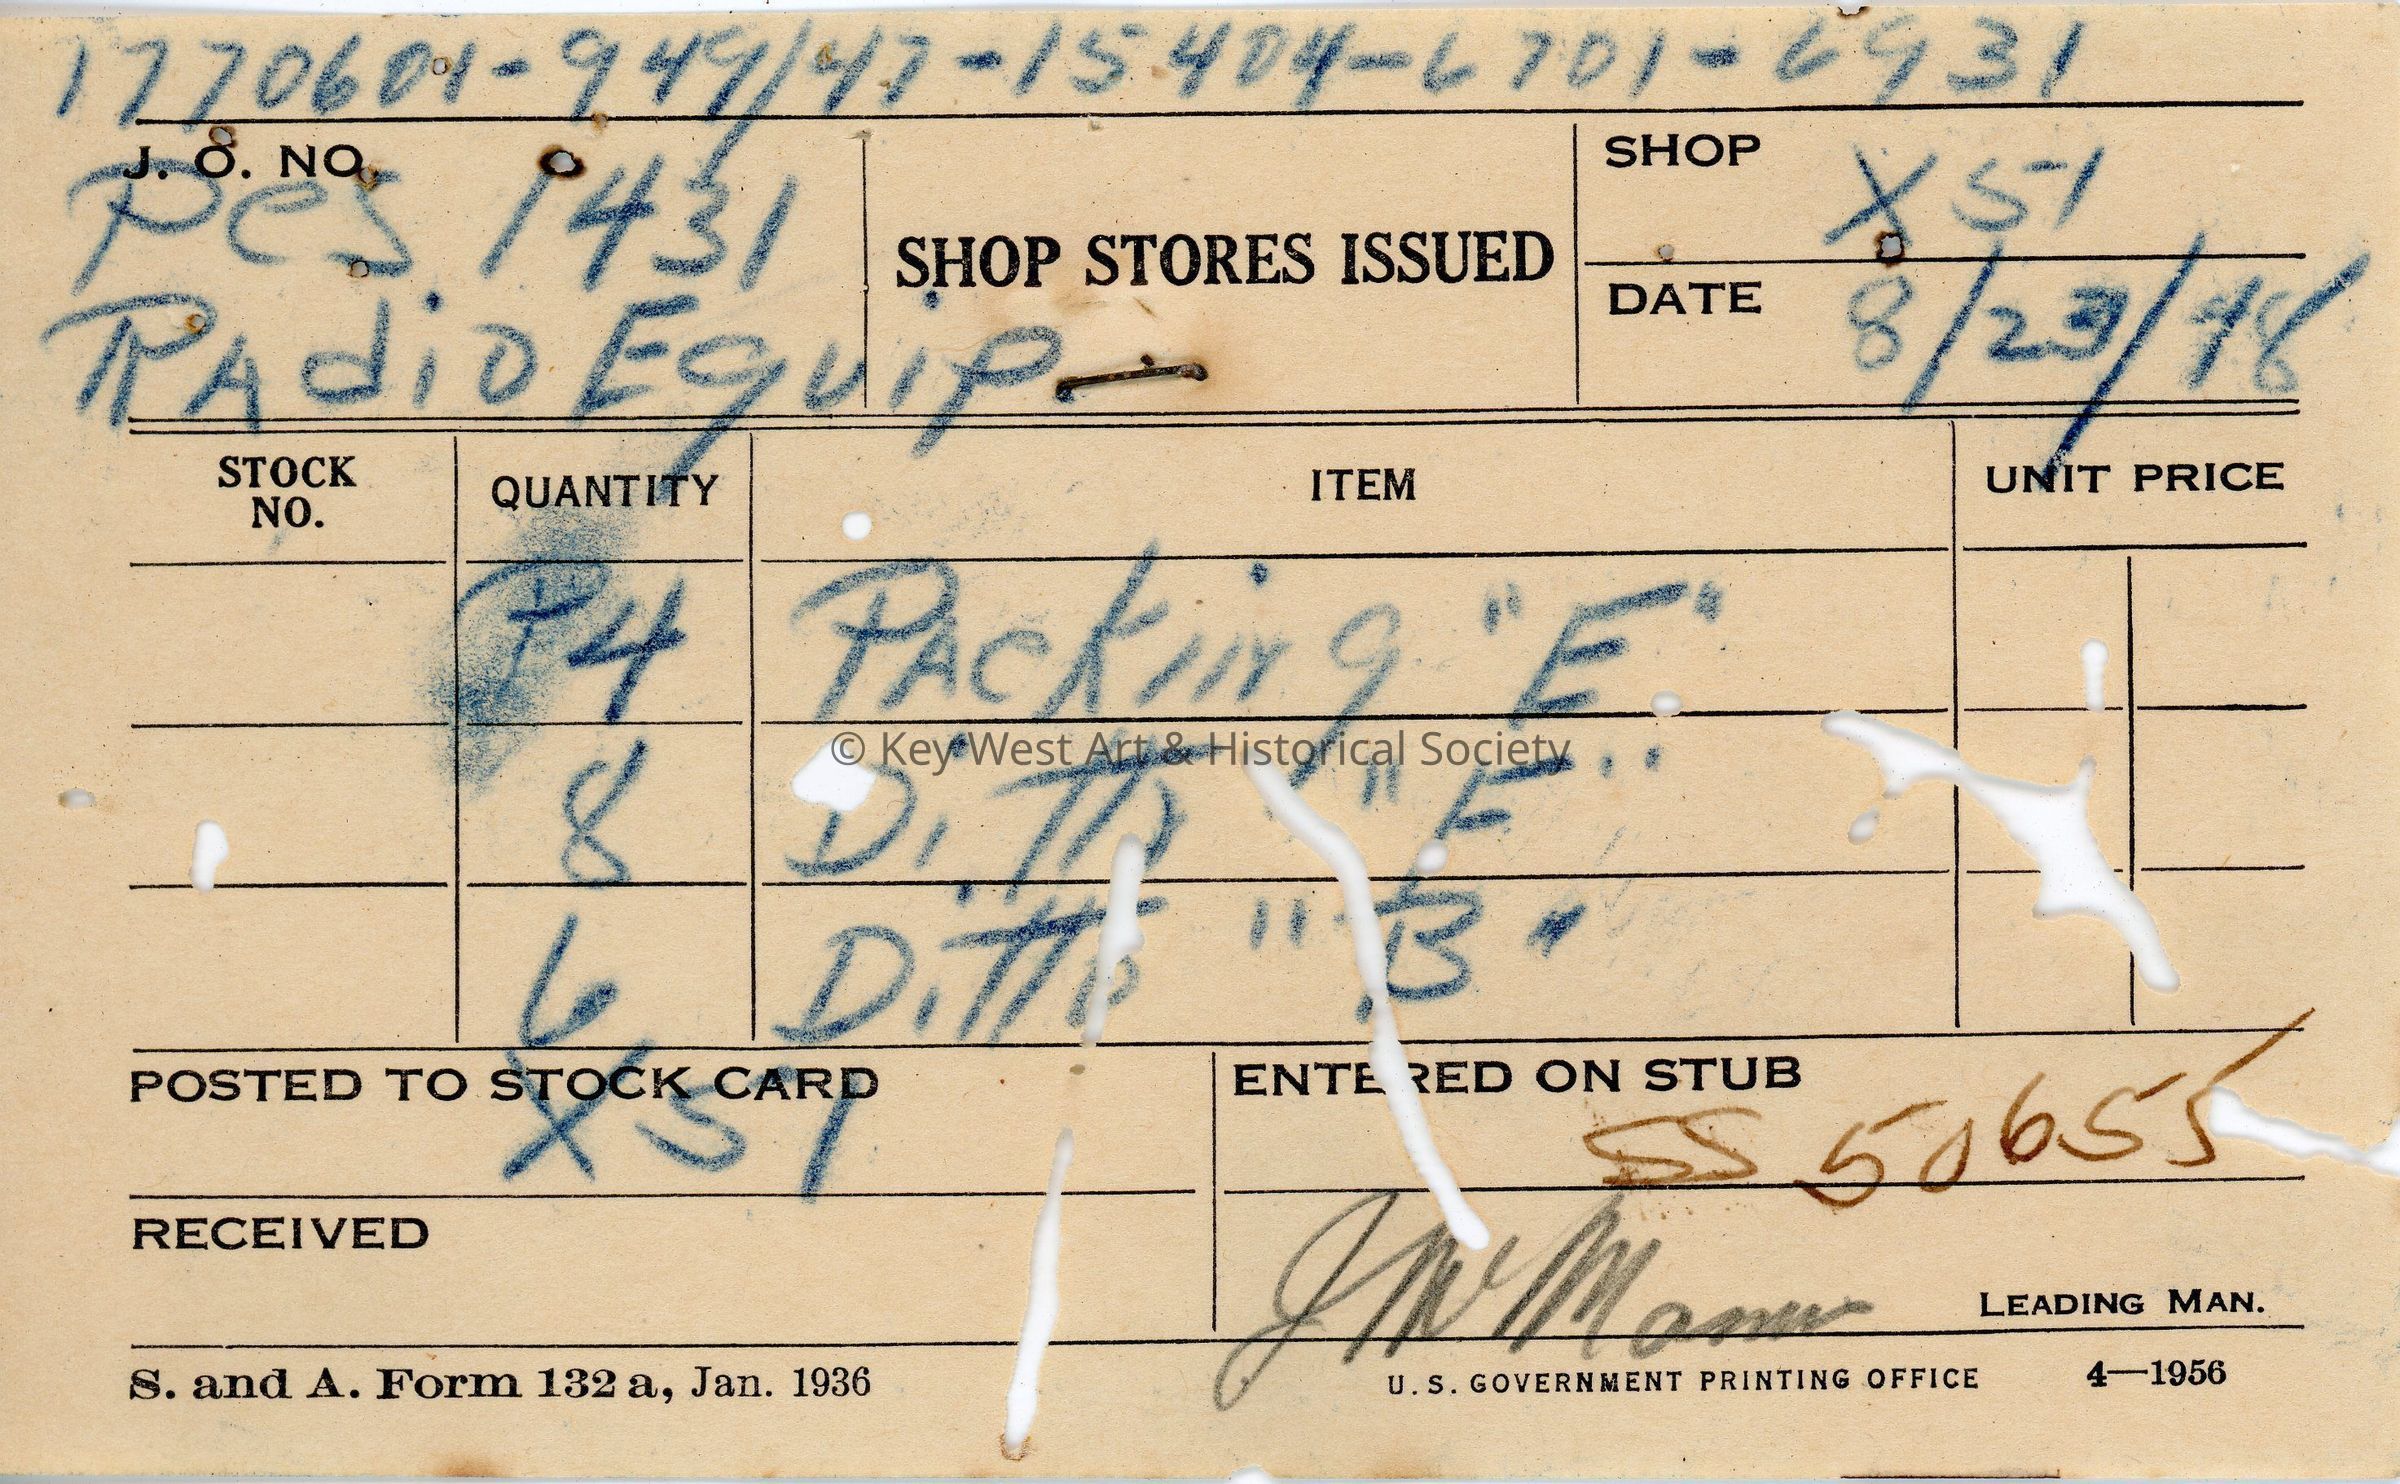 1770601-949/47-15404-6701-6931
J. O. NO.
PCS 1431
Radio Equip
SHOP STORES ISSUED
SHOP X51
DATE 8/23/48
STOCK NO. QUANTITY ITEM UNIT PRICE
4 Packing "E"
8 Ditto "F"
6 Ditto "B"
© Key West Art & Historical Society
POSTED TO STOCK CARD
X51
ENTERED ON STUB
SS 50655
RECEIVED
LEADING MAN.
S. and A. Form 132a, Jan. 1936
U. S. GOVERNMENT PRINTING OFFICE 4—1956